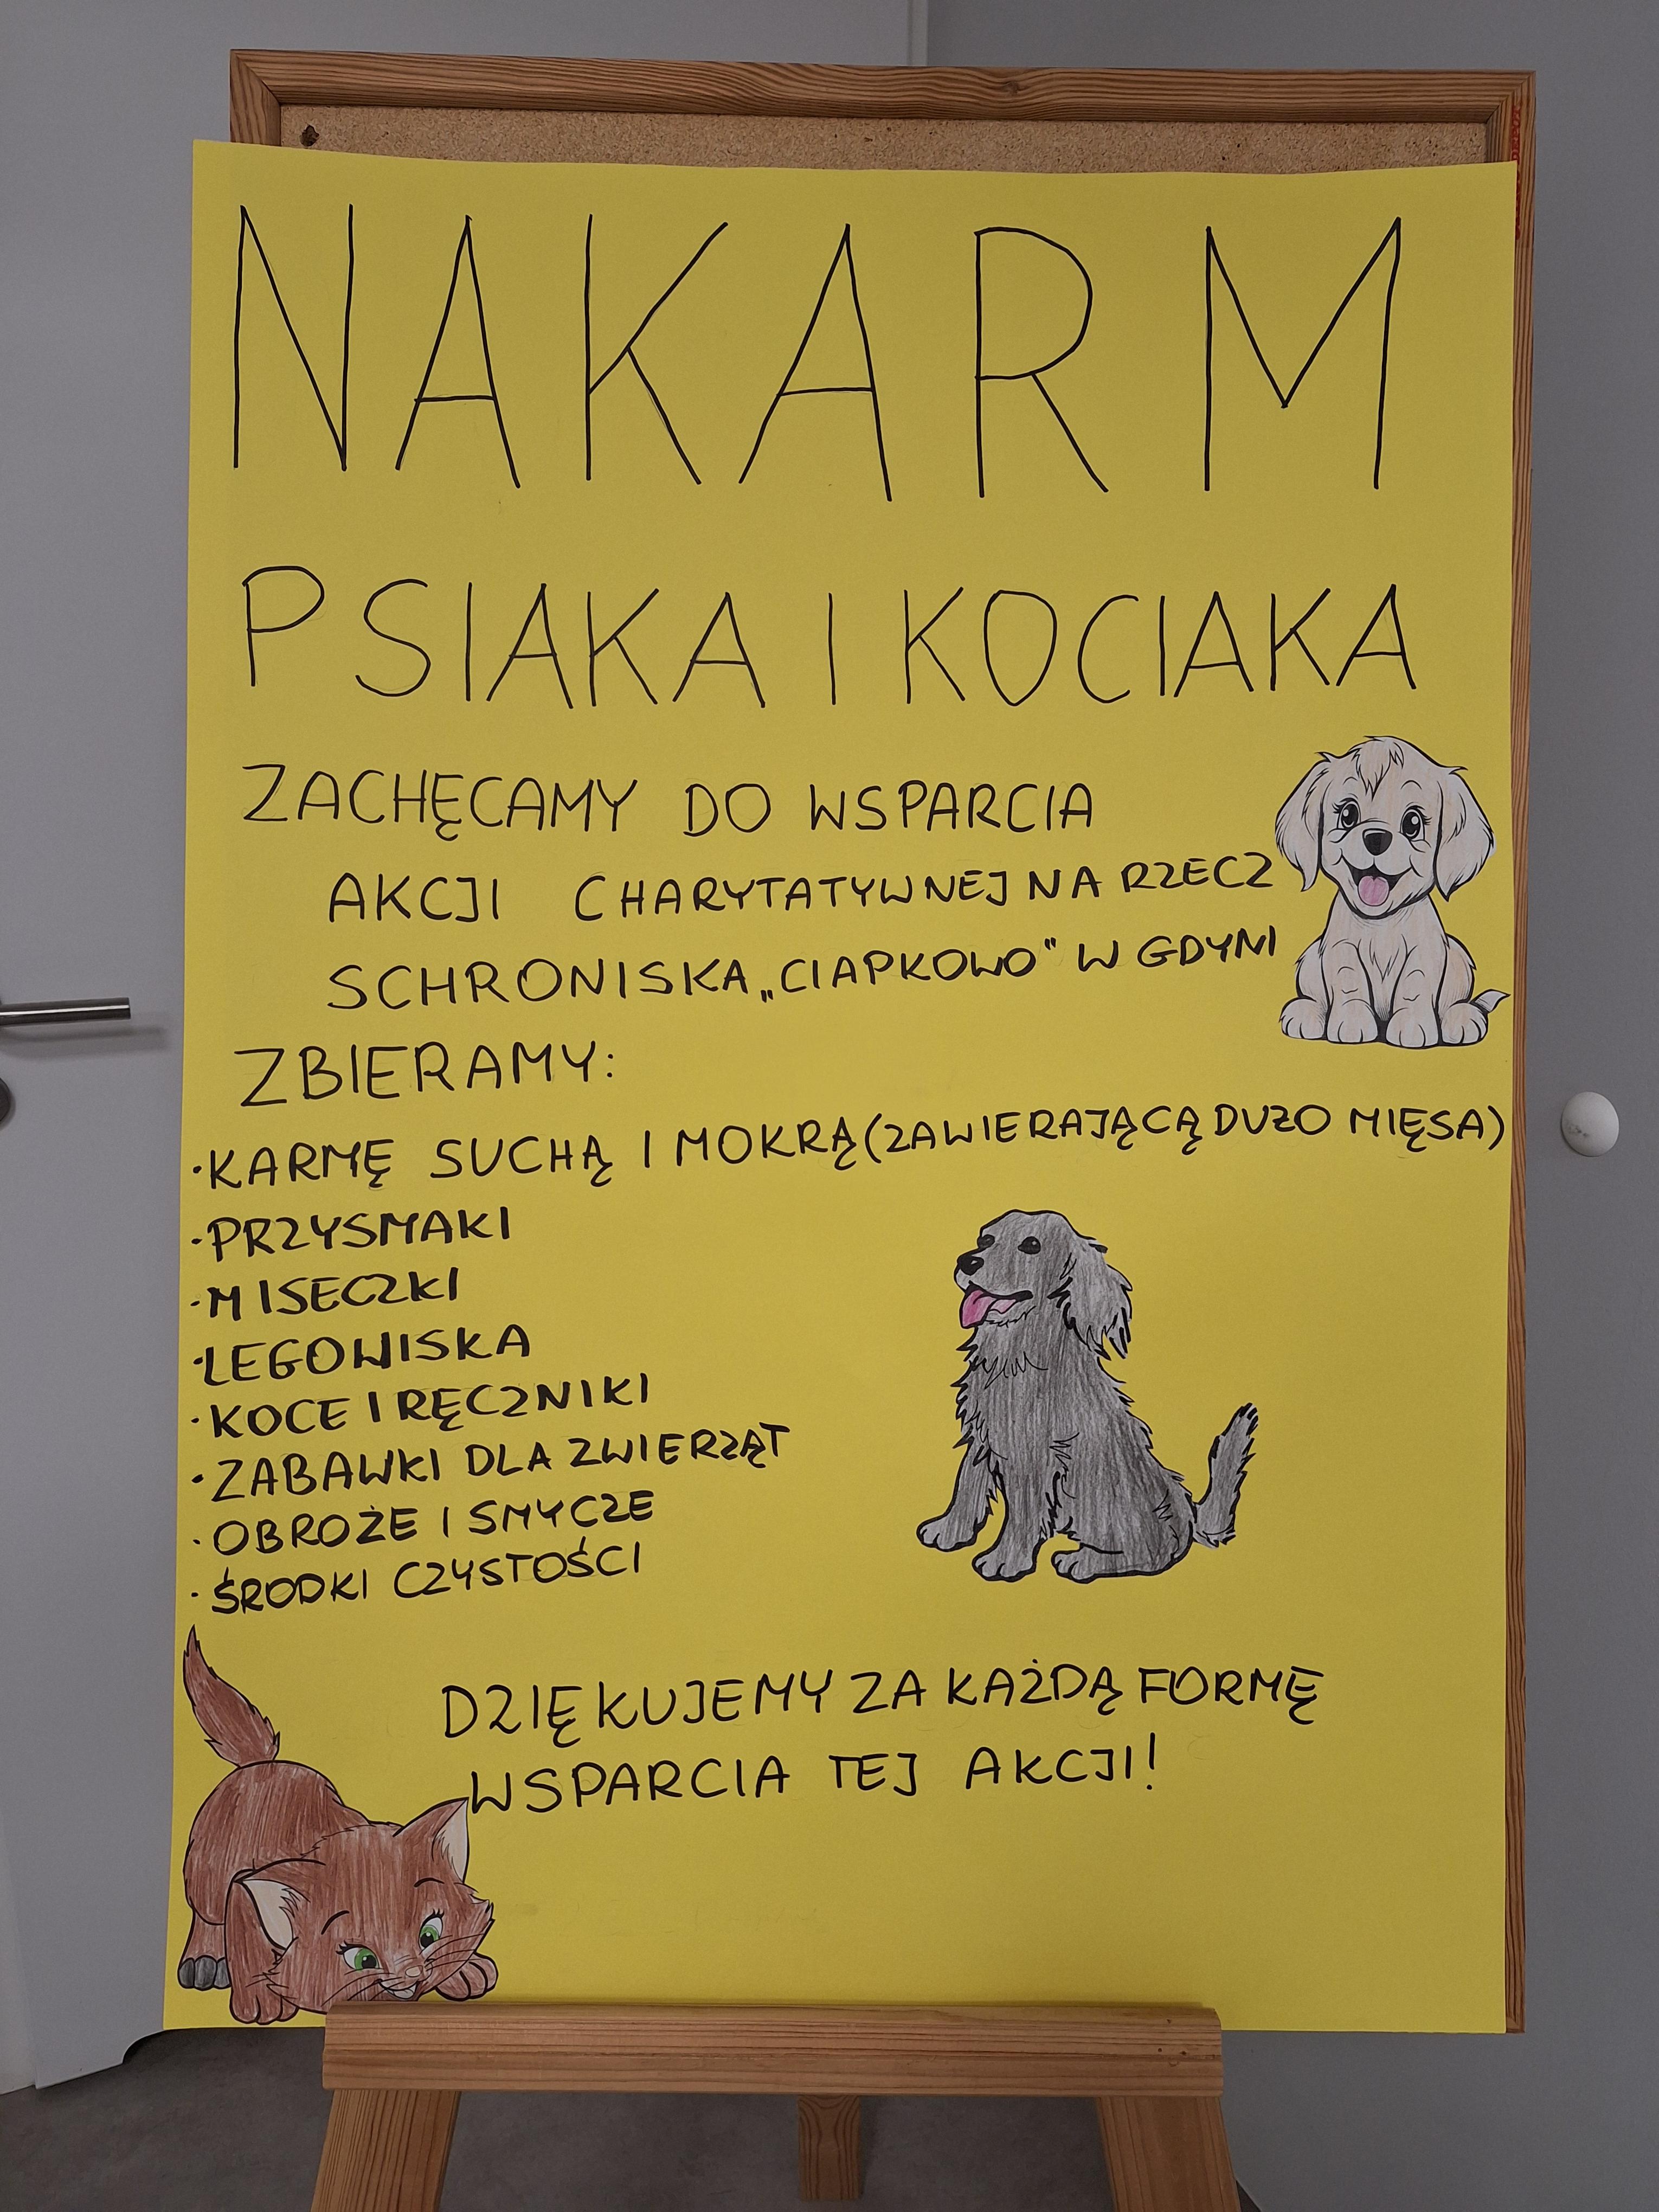 NAKARM
PSIAKA I KOCIAKA
ZACHĘCAMY DO WSPARCIA
AKCJI CHARYTATYWNEJ NA RZECZ
SCHRONISKA „CIAPKOWO" W GDYNI
ZBIERAMY:
·KARMĘ SUCHĄ I MOKRĄ (ZAWIERAJĄCĄ DUŻO MIĘSA)
·PRZYSMAKI
·MISECZKI
·LEGOWISKA
·KOCE I RĘCZNIKI
·ZABAWKI DLA ZWIERZĄT
·OBROŻE I SMYCZE
·ŚRODKI CZYSTOŚCI
DZIĘKUJEMY ZA KAŻDĄ FORMĘ
WSPARCIA TEJ AKCJI!